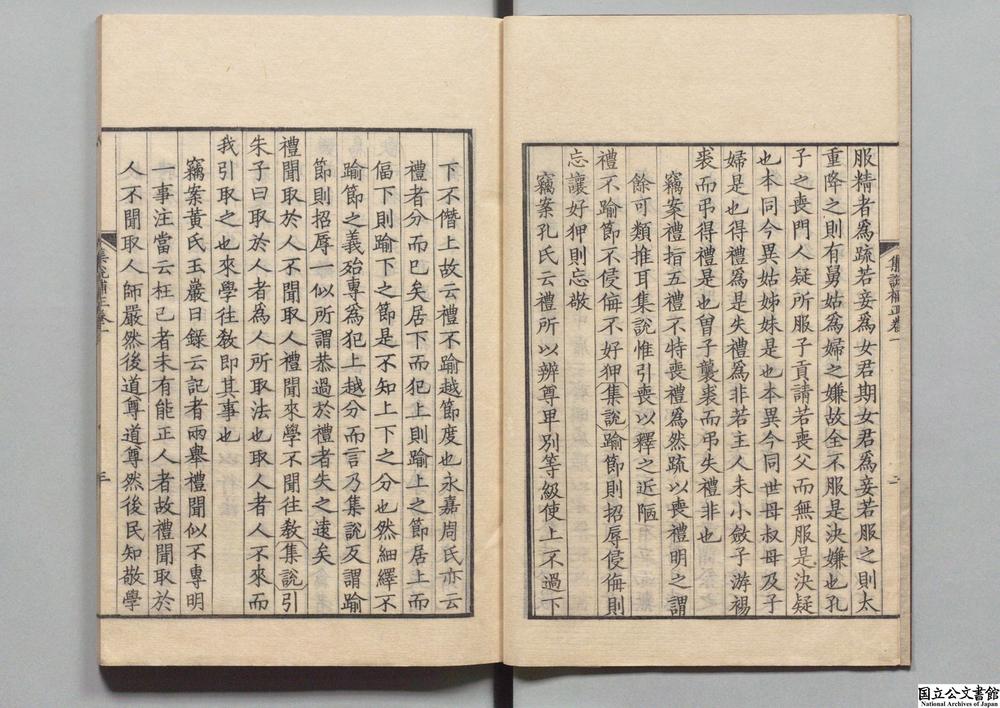 服精者爲疏若妾爲女君期女君爲妾若服之則太
重降之則有舅姑爲婦之嫌故全不服是決嫌也孔
子之喪門人疑所服子貢請若喪父而無服是決疑
也本同今異姑姊妹是也本異今同世母叔母及子
婦是也得禮爲是失禮爲非若主人未小斂子游裼
裘而弔得禮是也曾子襲裘而弔失禮非也
竊案禮指五禮不特喪禮爲然疏以喪禮明之謂
餘可類推耳集說惟引喪以釋之近陋
禮不踰節不侵侮不好狎集說踰節則招辱侵侮則
忘讓好狎則忘敬
竊案孔氏云禮所以辨尊卑別等級使上不過下
集說補正卷一
二
下不僭上故云禮不踰越節度也永嘉周氏亦云
禮者分而已矣居下而犯上則踰上之節居上而
偪下則踰下之節是不知上下之分也然細繹不
踰節之義殆專為犯上越分而言乃集說反謂踰
節則招辱一似所謂恭過於禮者失之遠矣
禮聞取於人不聞取人禮聞來學不聞往敎集說引
朱子曰取於人者爲人所取法也取人者人不來而
我引取之也來學往敎即其事也
竊案黃氏玉巖日錄云記者兩舉禮聞似不專明
一事注當云枉己者未有能正人者故禮聞取於
人不聞取人師嚴然後道尊道尊然後民知敬學
集說補正卷一
三
国立公文書館
National Archives of Japan